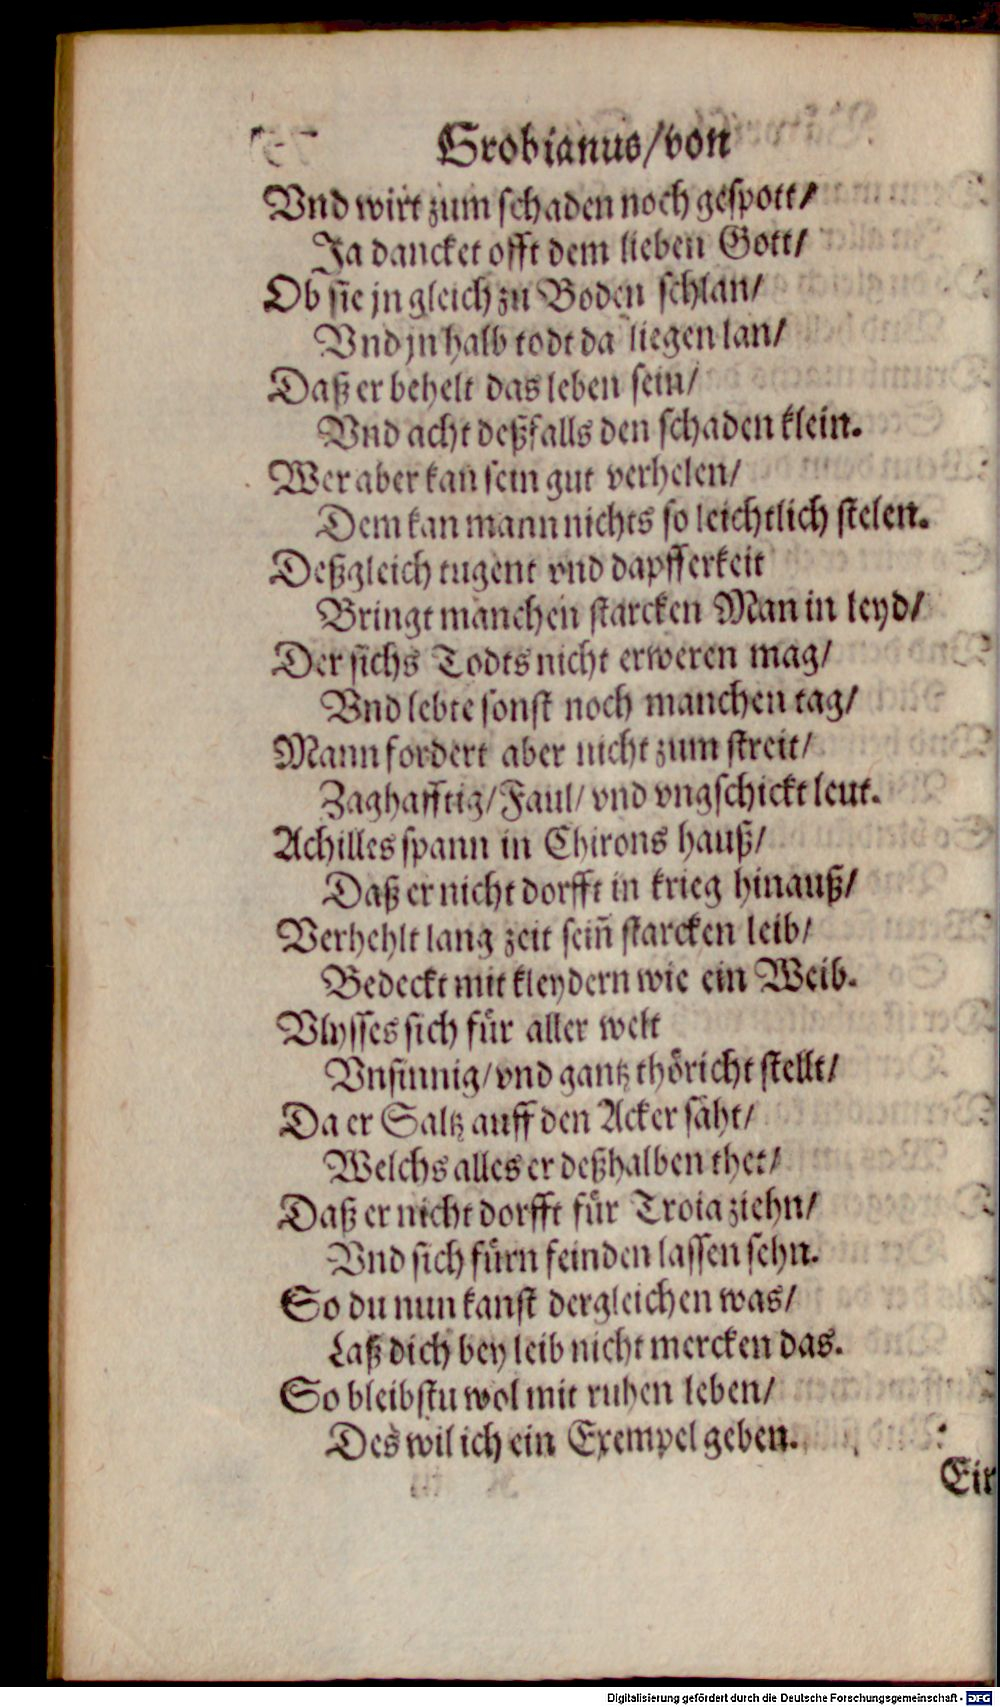 Grobianus/von
Vnd wirt zum schaden noch gespott/
Ja dancket offt dem lieben Gott/
Ob sie jn gleich zu Boden schlan/
Vnd jn halb todt da liegen lan/
Daß er behelt das leben sein/
Vnd acht deßfalls den schaden klein.
Wer aber kan sein gut verhelen/
Dem kan mann nichts so leichtlich stelen.
Deßgleich tugent vnd dapfferkeit
Bringt manchen starcken Man in leyd/
Der sichs Todts nicht erweren mag/
Vnd lebte sonst noch manchen tag/
Mann fordert aber nicht zum streit/
Zaghafftig/Faul/vnd vngschickt leut.
Achilles spann in Chirons hauß/
Daß er nicht dorfft in krieg hinauß/
Verhehlt lang zeit sein̄ starcken leib/
Bedeckt mit kleydern wie ein Weib.
Vlysses sich für aller welt
Vnsinnig/vnd gantz thöricht stellt/
Da er Saltz auff den Acker säht/
Welchs alles er deßhalben thet/
Daß er nicht dorfft für Troia ziehn/
Vnd sich fürn feinden lassen sehn.
So du nun kanst dergleichen was/
Laß dich bey leib nicht mercken das.
So bleibstu wol mit ruhen leben/
Des wil ich ein Exempel geben.
Ein
Digitalisierung gefördert durch die Deutsche Forschungsgemeinschaft - DFG